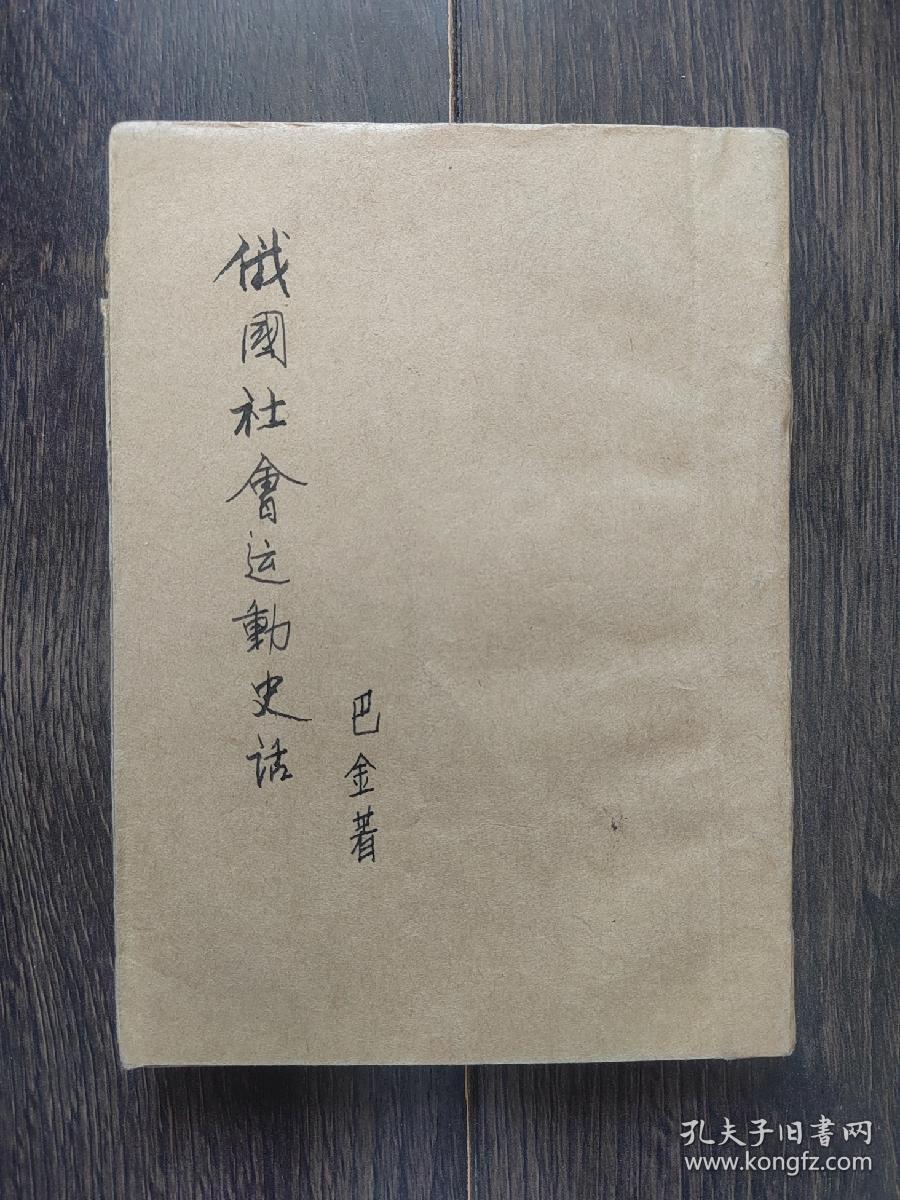 俄國社會运動史话
巴金著
孔夫子旧書网
www.kongfz.com